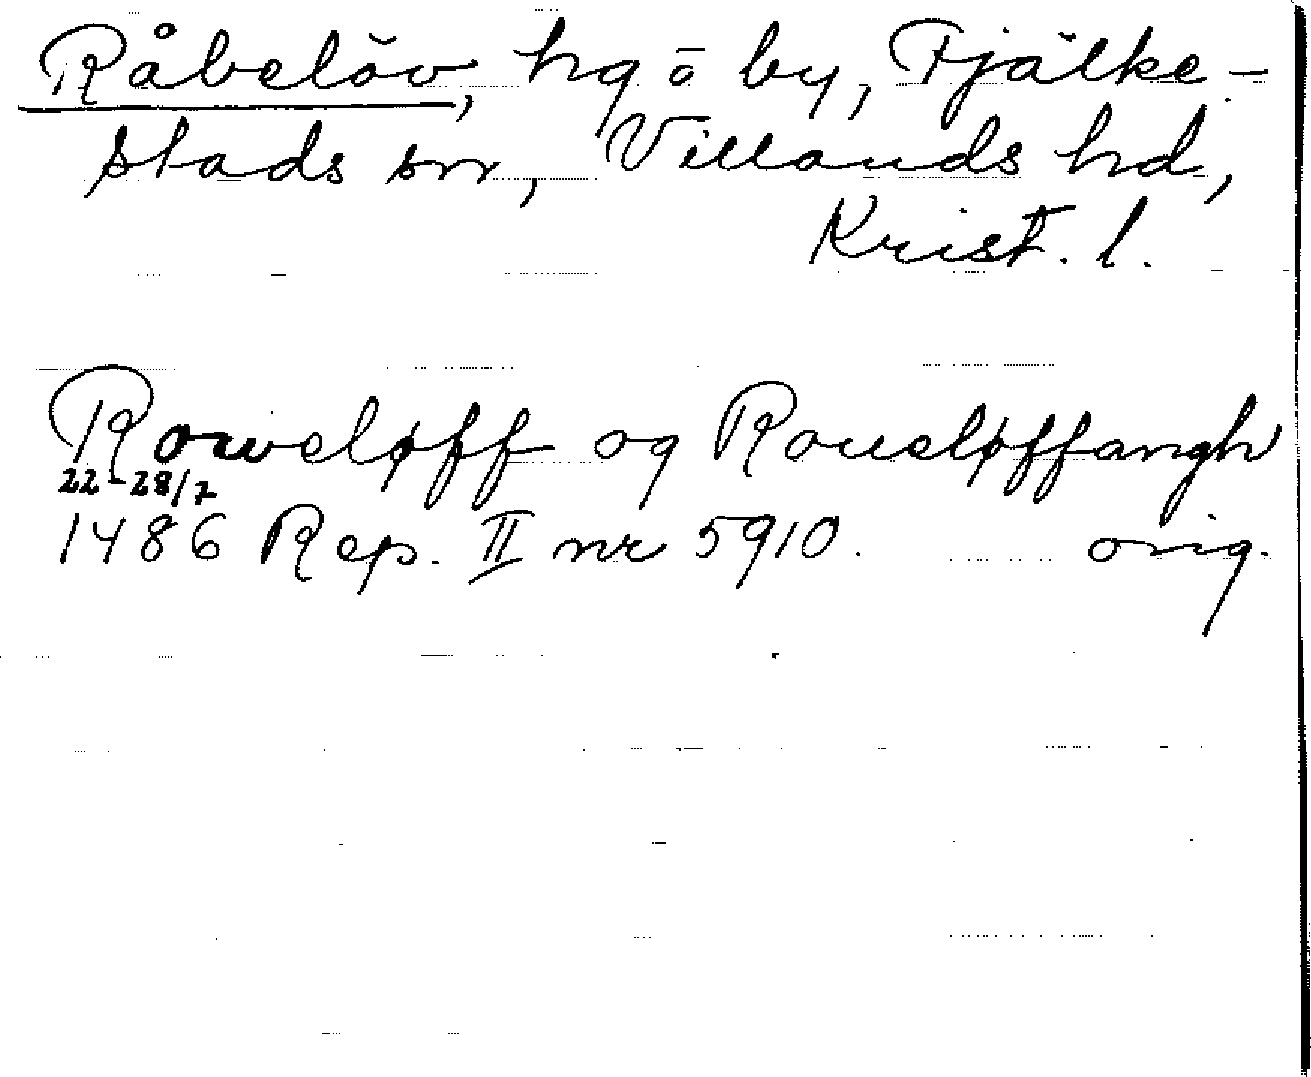 Råbelöv, hg ö by, Fjälke-
stads sn, Villands hd,
Krist. l.
Roweløff og Roueløffangh
22-28/7
1486 Rep. II nr 5910. orig.